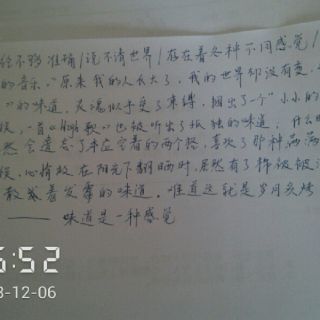 给不够准确/说不清世界/存在着各种不同感觉/
的音乐。"原来我的人长大了，我的世界却没有变
"的味道，灵魂似乎受了束缚，掴出了一个"小小的
候，一首《》也被听出了孤独的味道，什么时
然会遗忘了本应它有的两个控，喜欢了那种满满
候，心情放在阳光下翻晒时，居然有了样被被
散发着发霉的味道。难道这就是岁月炙烤
——味道是一种感觉
6:52
3-12-06